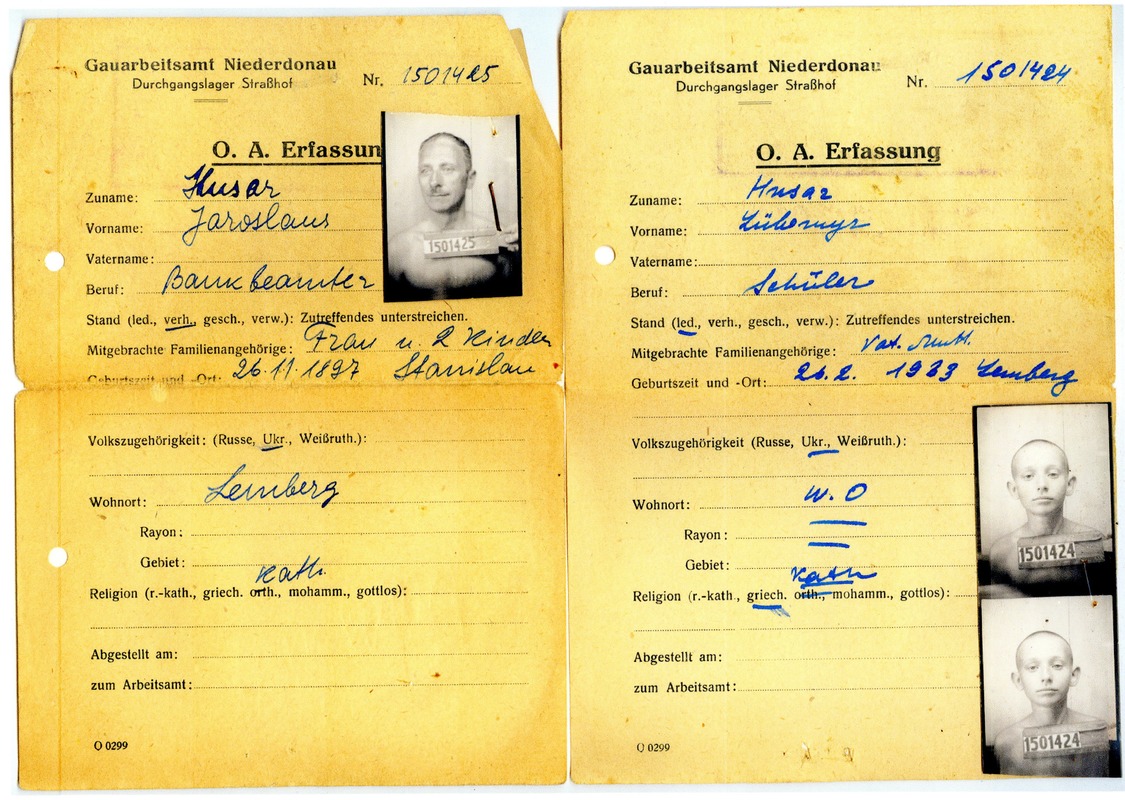 Gauarbeitsamt Niederdonau
Durchgangslager Straßhof
Nr. 1501425
O. A. Erfassun
Zuname: Husar
Vorname: Jaroslaus
Vatername:
Beruf: Bankbeamter
Stand (led., verh., gesch., verw.): Zutreffendes unterstreichen.
Mitgebrachte Familienangehörige: Frau u. 2 Kinder
Geburtszeit und -Ort: 26.11.1897 Stanislau
Volkszugehörigkeit: (Russe, Ukr., Weißruth.):
Wohnort: Lemberg
Rayon:
Gebiet:
Kath.
Religion (r.-kath., griech. orth., mohamm., gottlos):
Abgestellt am:
zum Arbeitsamt:
O 0299
1501425
Gauarbeitsamt Niederdonau
Durchgangslager Straßhof
Nr. 1501424
O. A. Erfassung
Zuname: Husar
Vorname: Lübomyr
Vatername:
Beruf: Schüler
Stand (led., verh., gesch., verw.): Zutreffendes unterstreichen.
Mitgebrachte Familienangehörige: Vat. Mutt.
Geburtszeit und -Ort: 26.2. 1933 Lemberg
Volkszugehörigkeit (Russe, Ukr., Weißruth.):
Wohnort: w. O
Rayon:
Gebiet:
Kath
Religion (r.-kath., griech. orth., mohamm., gottlos):
Abgestellt am:
zum Arbeitsamt:
O 0299
1501424
1501424